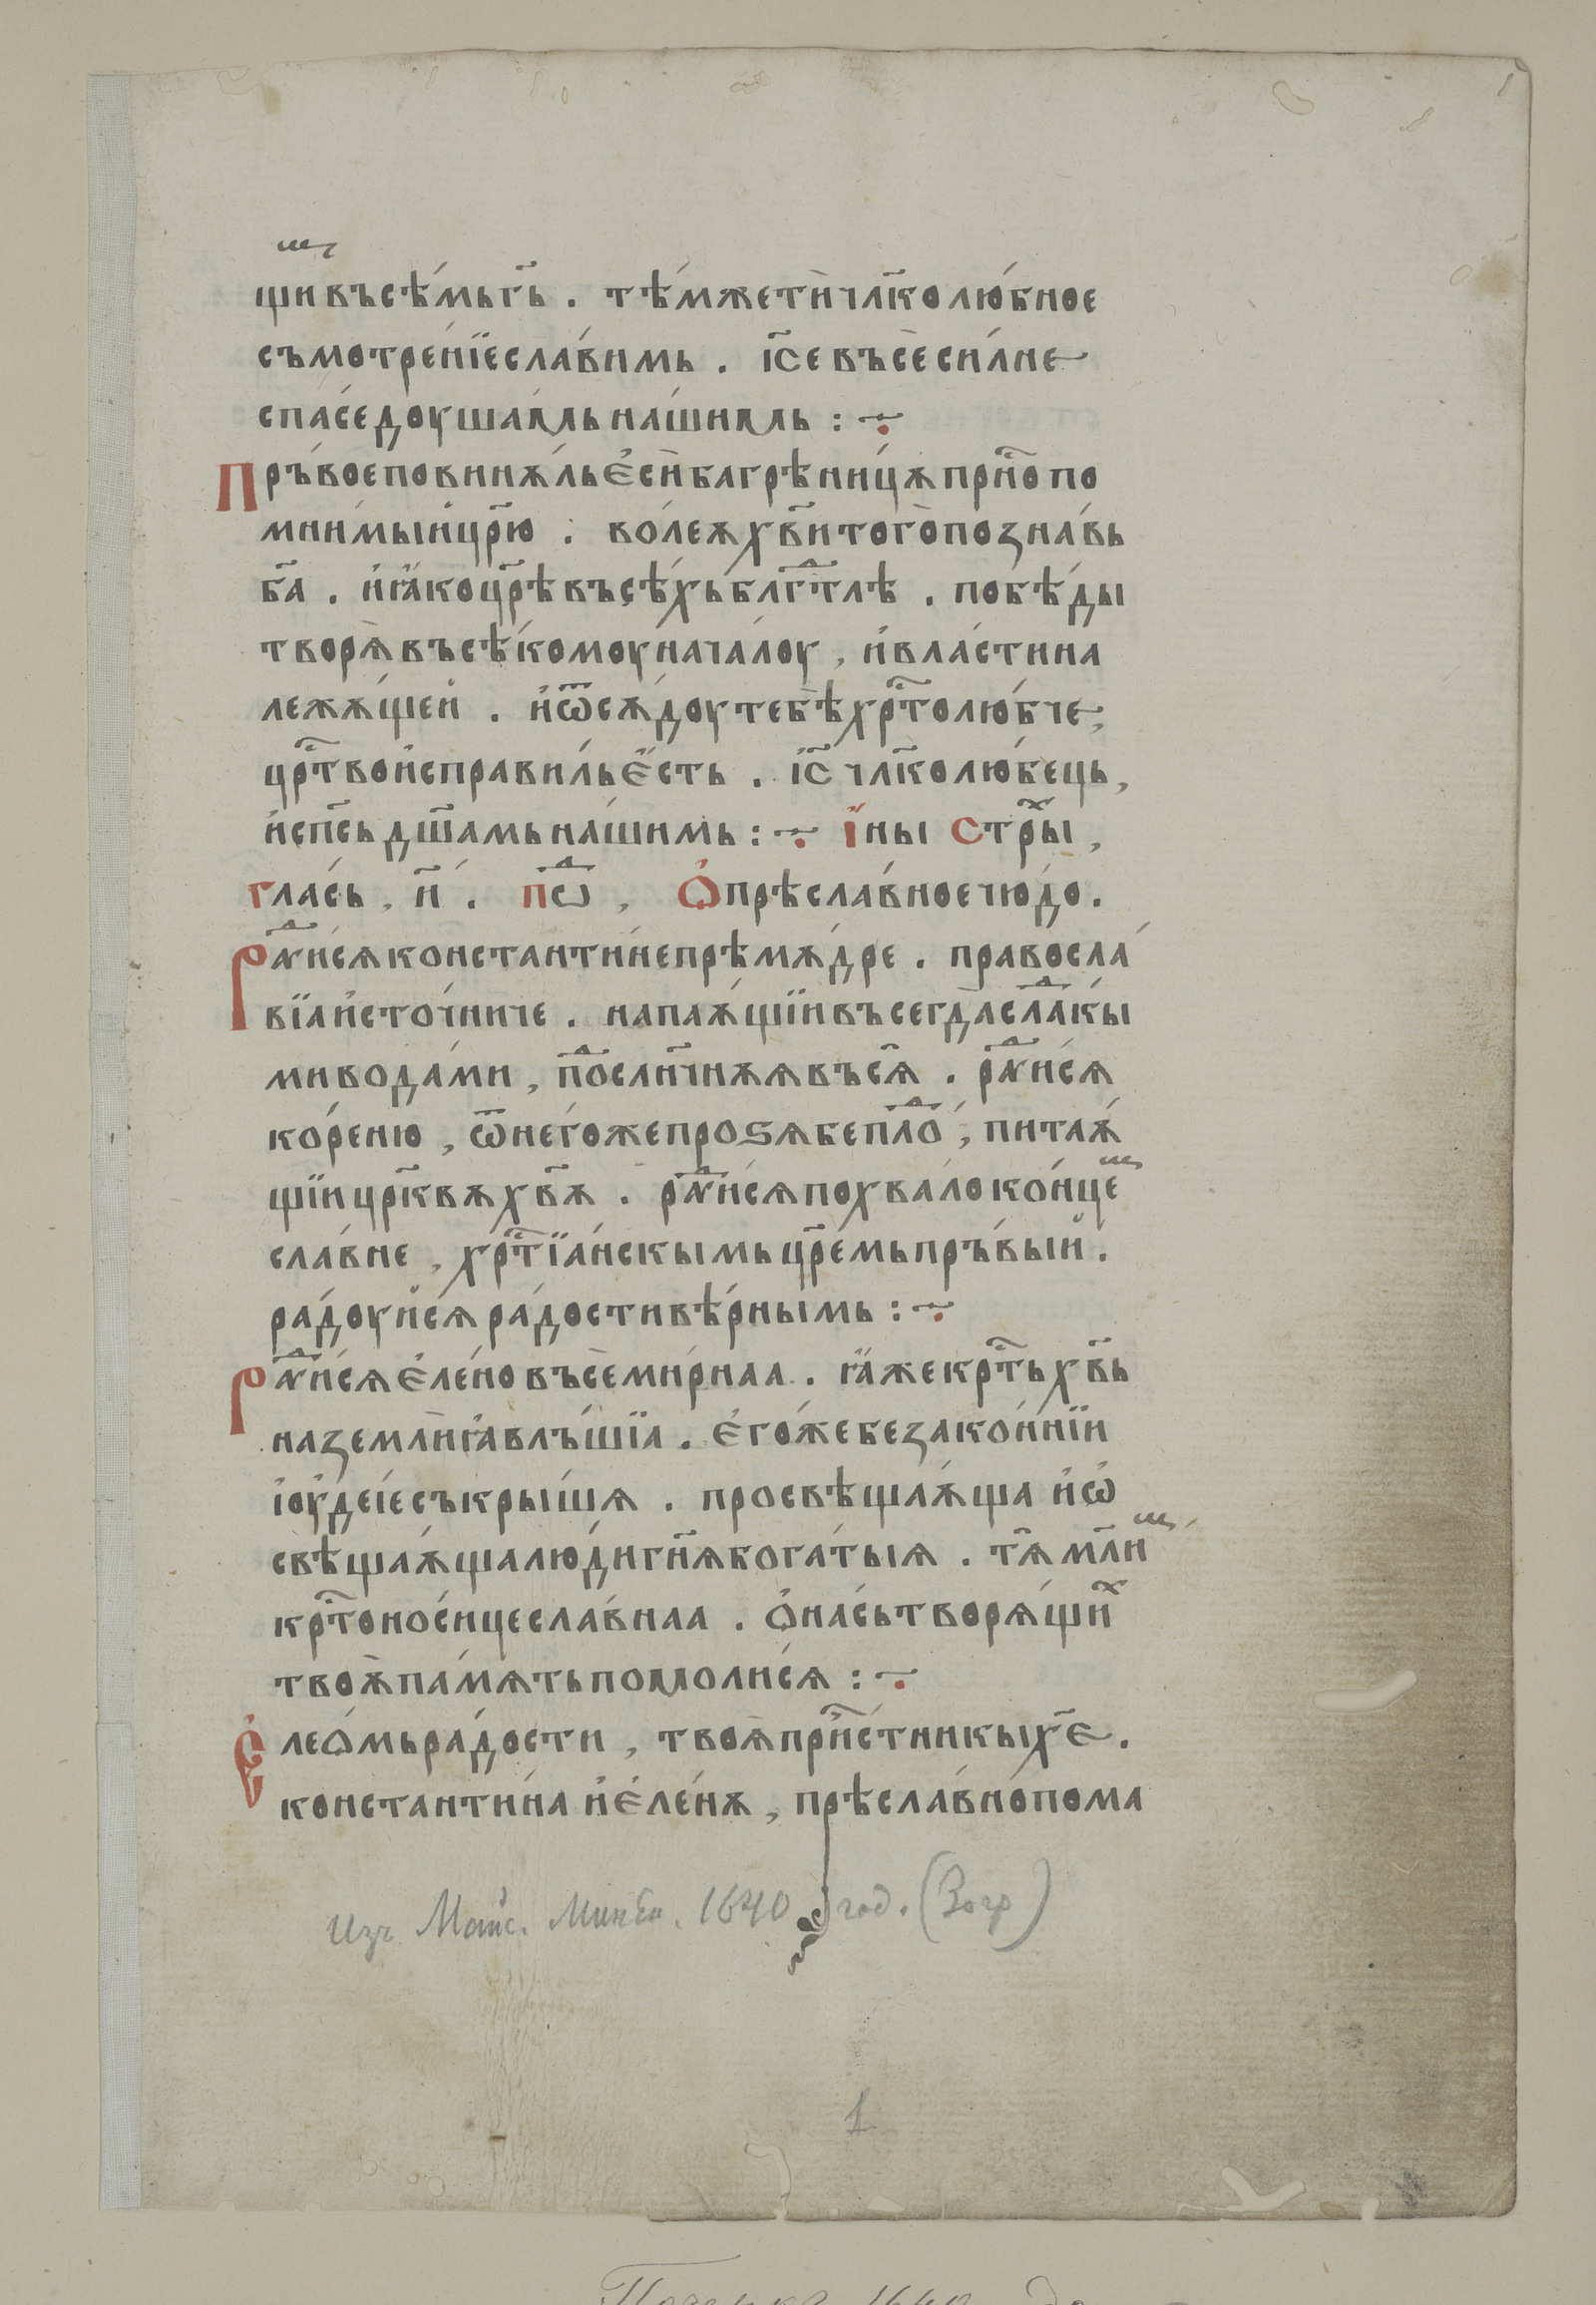 щи въсѣ́мь гⷭ҇ь . тѣ́мже ти̏ чл҃колю́бное
съмотре́нїе сла́вимь . і҃се въсѐси́лне
спа́се доуша́мь на́шимь : ~
Пръ́вое повинѫ́ль є҆сѝ багрѣни́цѫ прⷭ҇но по
мни́мыи цр҃ю . во́леѫ хв҃и того̀ позна́вь
б҃а . и҆ ꙗ҆́ко цр҃ѣ въсѣ́хь блгⷣтлѣ . побѣ́ды
творѧ̀ въсѣ́комоу нача́лоу , и҆ вла́сти на
лежѧ́щеи . и҆ ѿсѫ́доу тебѣ̀ хрⷭ҇толю́бче ,
црⷭ҇тво и҆спра́виль є҆́сть . і҃с чл҃колю́бець ,
и҆ сп҃сь дш҃амь на́шимь : ~ і҆ны стрⷯы ,
гла́сь , и҃ . пⷣѡ , Ѽ прѣсла́вное чю́до .
Раⷣуисѧ константи́не прѣмѫ́дре . правосла́
вїа и҆сто́чниче . напаѫ́щїи въсегда̀ слаⷣкы
ми вода́ми , поⷣслн҃чнѫѧ въсѧ҄ . раⷣуисѧ
ко́реню , ѿ него́же прозѧ́бе плоⷣ , питаѫ́
щїи цр҃квѫ хв҃ѫ . раⷣуисѧ похва́ло ко́нце
сла́вне , хрⷭ҇тїа́нскымь цр҃е́мь пръ́выи .
ра́доуисѧ ра́дости вѣ́рнымь : ~
Раⷣуисѧ є҆ле́но въсеми́рнаа . ꙗ҆́же крⷭ҇ть хв҃ь
на землѝ ꙗ҆влъ́шїа . є҆го́же безако́ннїи
і҆оуде́іе съкры́шѧ . просвѣщаѫ́ща и҆ ѡ҆
свѣщаѫ́ща лю́ди гн҃ѧ бога́тыѧ . тѧ҄ мл҃и
крⷭ҇тоно́сице сла́внаа . ѻ҆ на́сь творѧ́щиⷯ
твоѫ̀ па́мѧть помоли́сѧ : ~
Є҆леѻ́мь ра́дости , твоѧ̀ прⷱи́стникы хе҃ .
константи́на и҆ є҆ле́нѫ , прѣсла́вно пома
Изъ Майс. Минѣи. 1640 год. (Зогр)
1